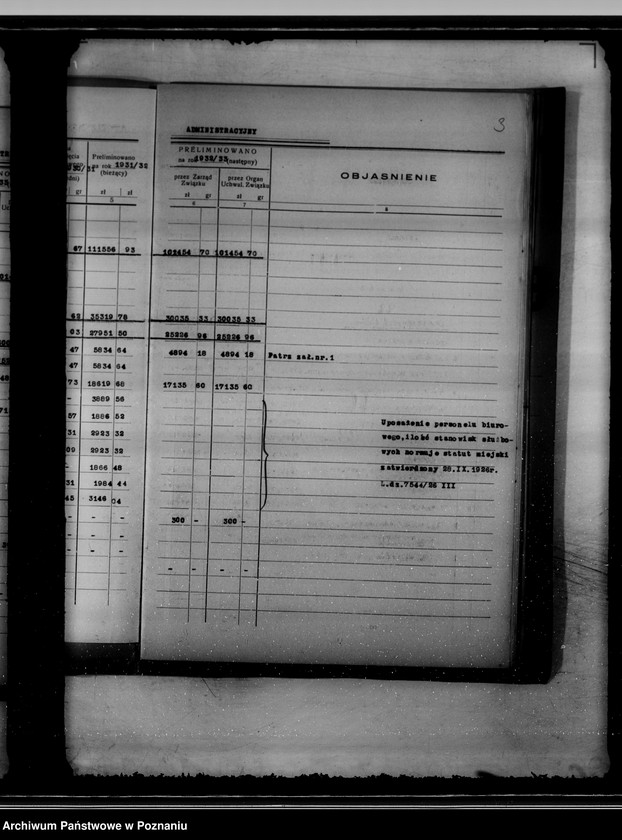 3
ADMINISTRACYJNY
PRELIMINOWANO
na rok 1932/33 (następny)
OBJAŚNIENIE
przez Zarząd Związku
przez Organ Uchwal. Związku
zł gr zł gr
6 7 8
Preliminowano
na rok 1931/32
(bieżący)
gr zł zł
5
67 111556 93
101454 70 101454 70
62 35319 78
30035 33 30035 33
03 27951 50
25226 96 25226 96
47 5834 64
4894 18 4894 18 Patrz zał.nr.1
47 5834 64
73 18619 68
17135 60 17135 60
- 3889 56
57 1886 52
31 2923 32
09 2923 32
- 1866 48
31 1984 44
45 3146 04
Uposażenie personelu biuro-
wego, ilość stanowisk służbo-
wych normuje statut miejski
zatwierdzony 28.IX.1926r.
L.dz.7544/26 III
- - -
300 - 300 -
- - -
- - -
- - - -
Archiwum Państwowe w Poznaniu